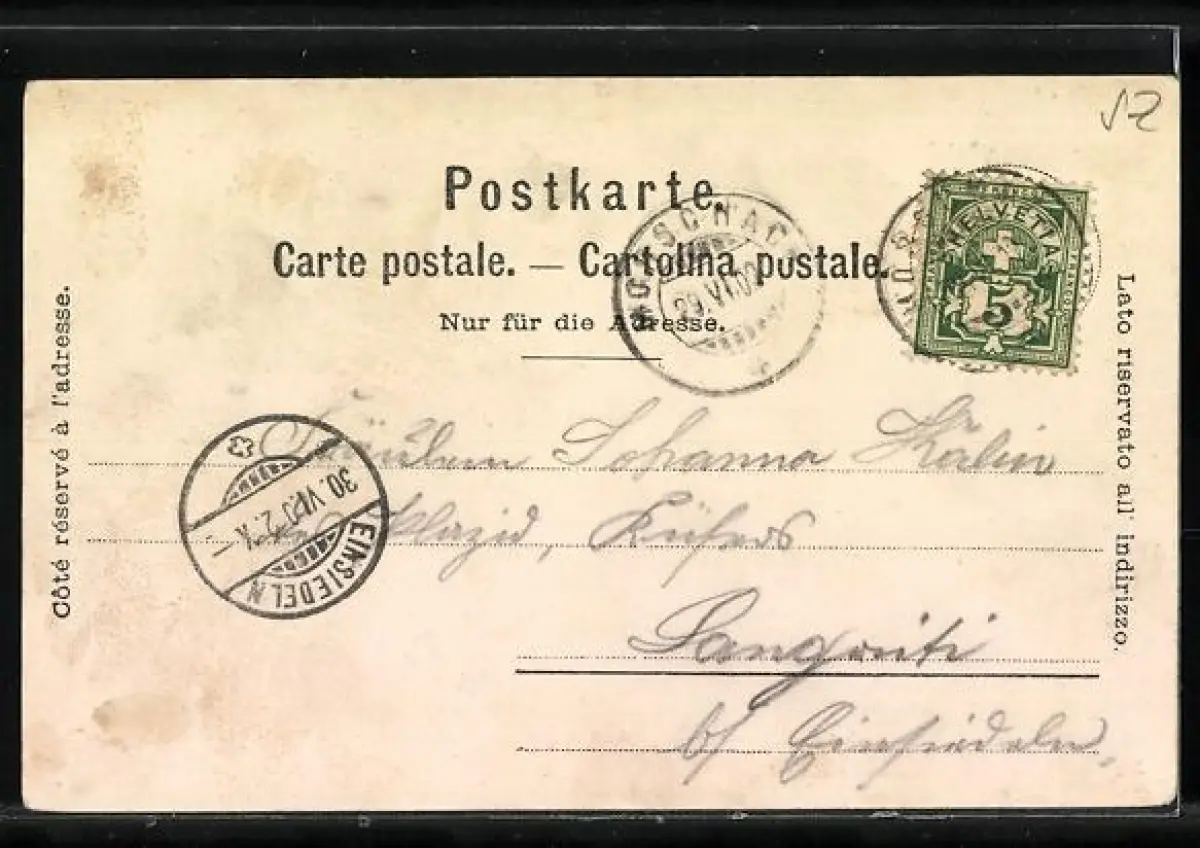 52
Postkarte.
Carte postale. — Cartolina postale.
Nur für die Adresse.
Côté réservé à l'adresse.
Lato riservato all' indirizzo.
HELVETIA
FRANCO
5
RORSCHACH
29.VI.02
EINSIEDELN
30.VI.02
Fräulein Johanna Kälin
Plazid, Küfers
Langrüti
b/ Einsiedeln,